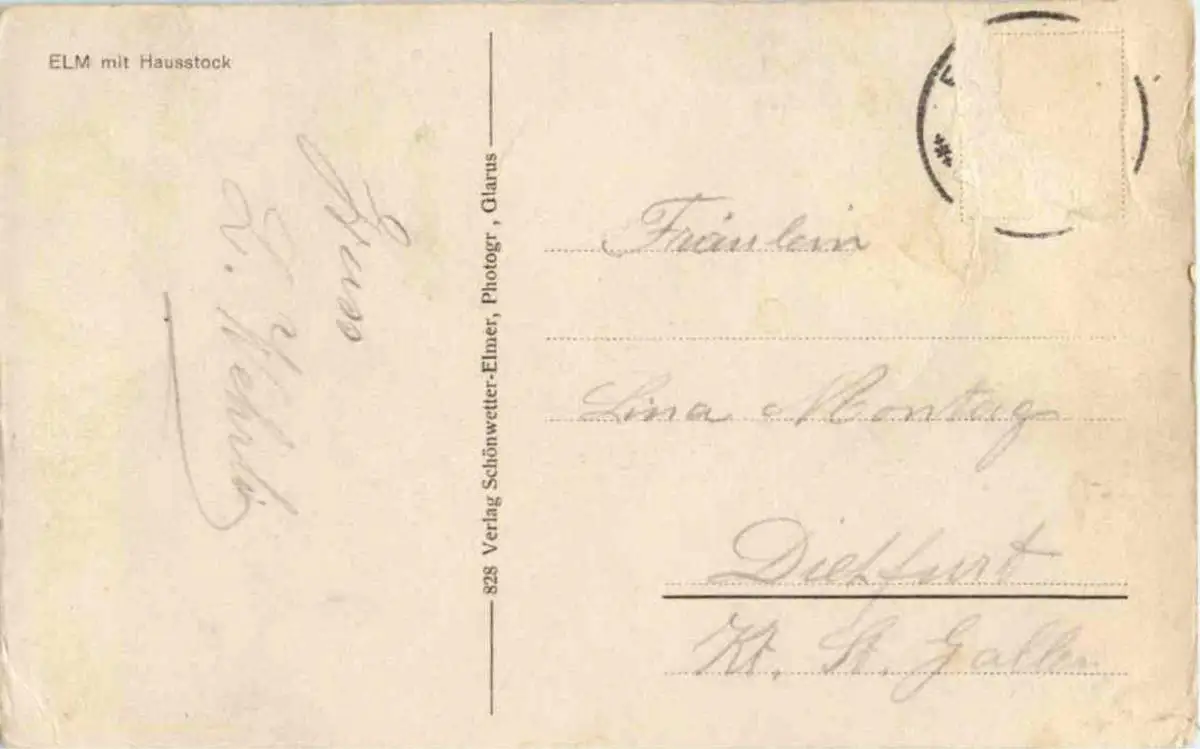 ELM mit Hausstock
Gruss
L. Wehrli
828 Verlag Schönwetter-Elmer, Photogr , Glarus
Fräulein
Lina Montag
Dietfurt
Kt. St. Gallen